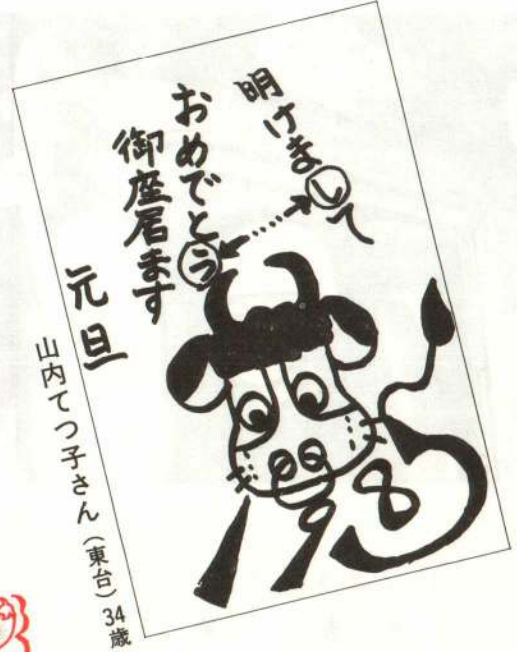 明けまして
おめでとう
御座居ます
元旦
1985
山内てつ子さん（東台）34歳